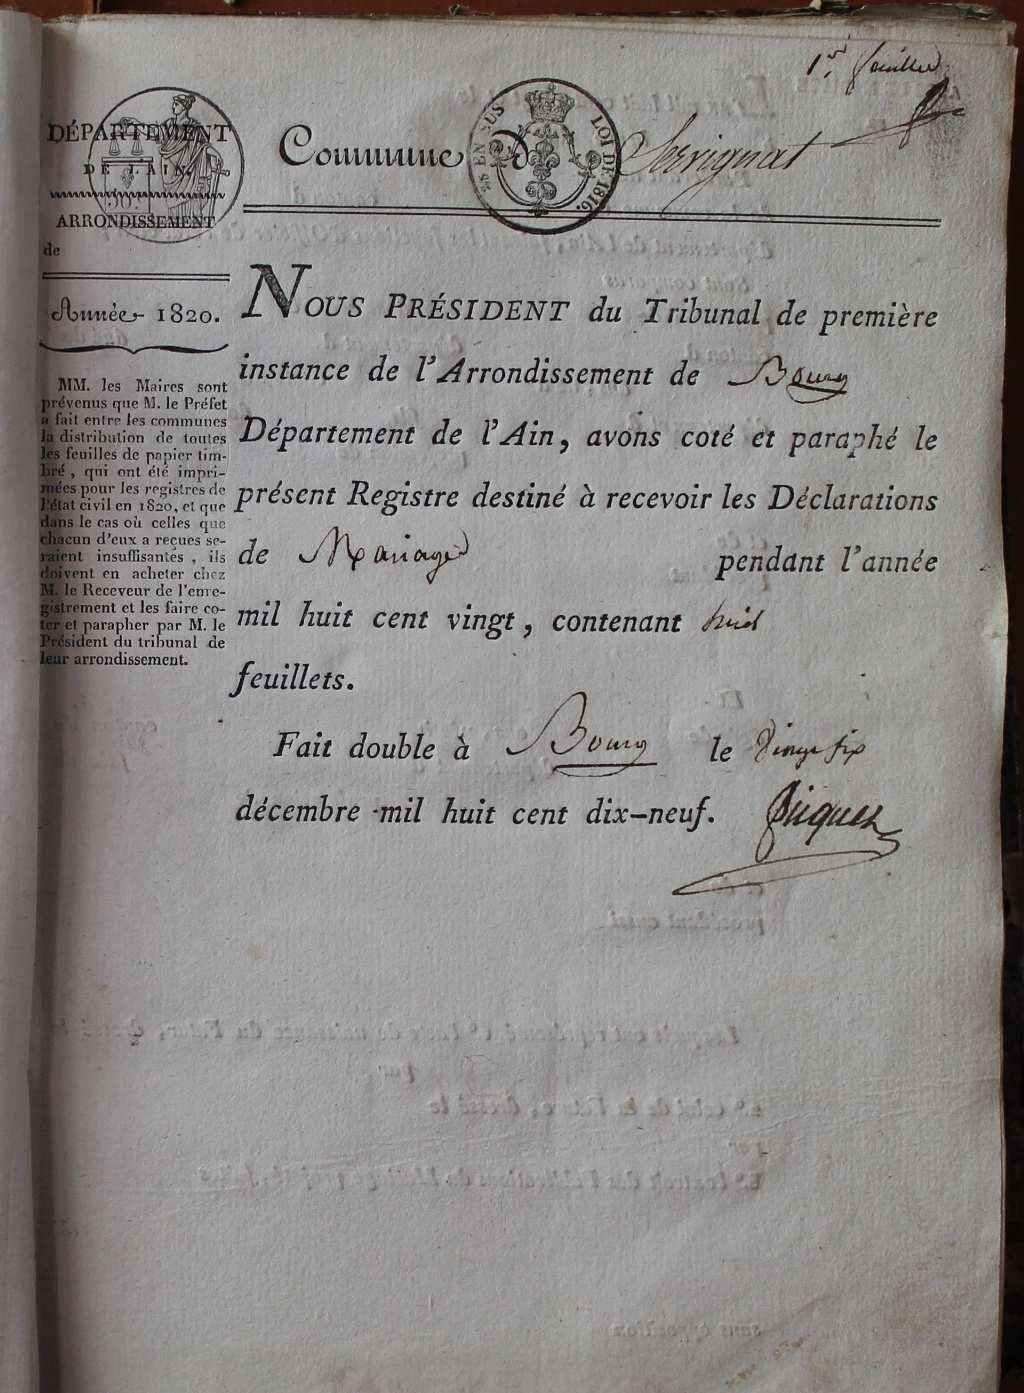 1er feuillet
DÉPARTEMENT
DE L'AIN.
ARRONDISSEMENT
de
Commune de Servignat
EN SUS
LOI DE 1816.
Année 1820.
MM. les Maires sont
prévenus que M. le Préfet
a fait entre les communes
la distribution de toutes
les feuilles de papier tim-
bré, qui ont été impri-
mées pour les registres de
l'état civil en 1820, et que
dans le cas où celles que
chacun d'eux a reçues se-
raient insuffisantes, ils
doivent en acheter chez
M. le Receveur de l'enre-
gistrement et les faire co-
ter et parapher par M. le
Président du tribunal de
leur arrondissement.
NOUS PRÉSIDENT du Tribunal de première
instance de l'Arrondissement de Bourg
Département de l'Ain, avons coté et paraphé le
présent Registre destiné à recevoir les Déclarations
de Mariage pendant l'année
mil huit cent vingt, contenant huit
feuillets.
Fait double à Bourg le vingt six
décembre mil huit cent dix-neuf.